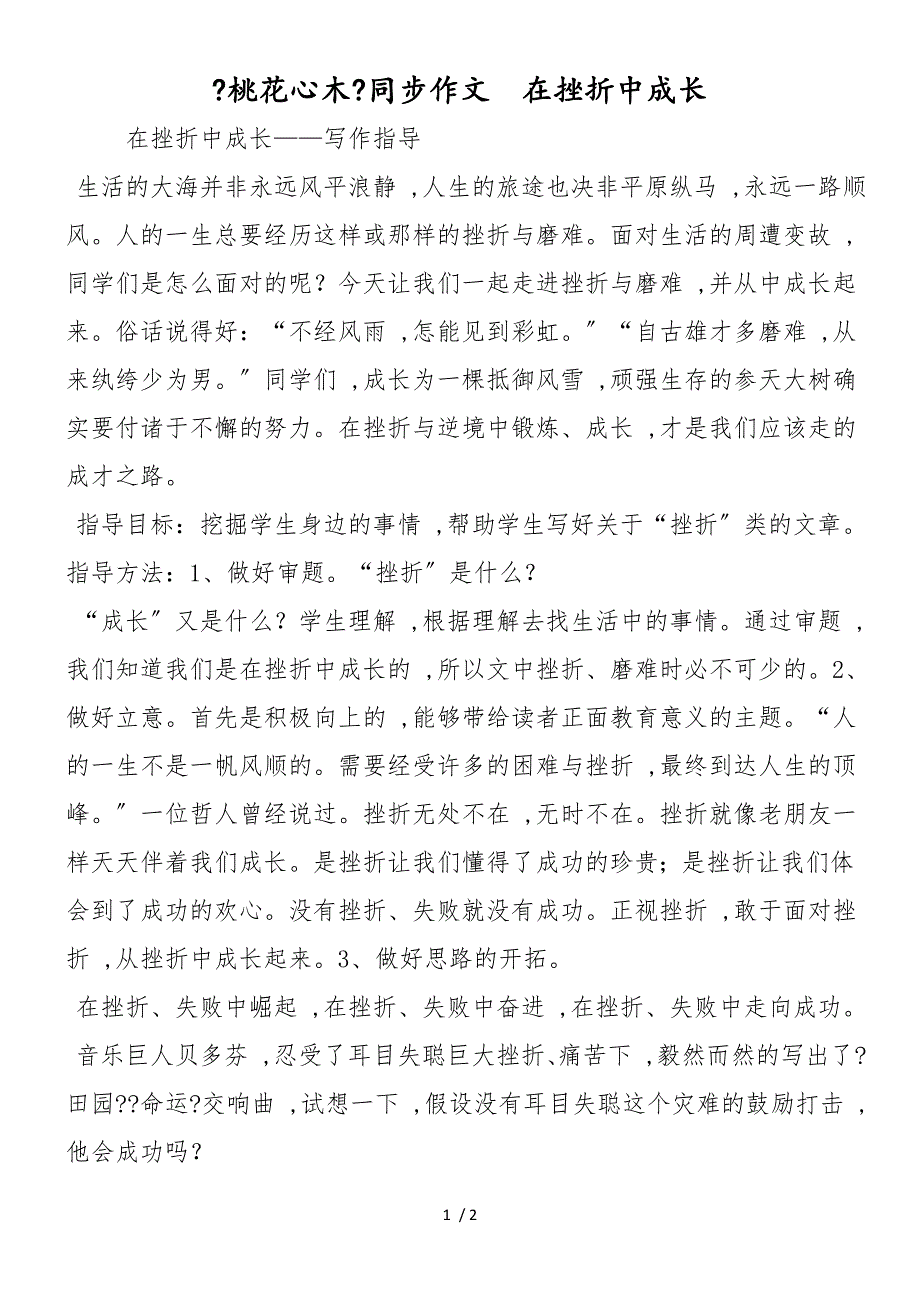 ?桃花心木?同步作文　在挫折中成长
在挫折中成长——写作指导
生活的大海并非永远风平浪静 ,人生的旅途也决非平原纵马 ,永远一路顺
风。人的一生总要经历这样或那样的挫折与磨难。面对生活的周遭变故 ,
同学们是怎么面对的呢？今天让我们一起走进挫折与磨难 ,并从中成长起
来。俗话说得好：“不经风雨 ,怎能见到彩虹。〞“自古雄才多磨难 ,从
来纨绔少为男。〞同学们 ,成长为一棵抵御风雪 ,顽强生存的参天大树确
实要付诸于不懈的努力。在挫折与逆境中锻炼、成长 ,才是我们应该走的
成才之路。
指导目标：挖掘学生身边的事情 ,帮助学生写好关于“挫折〞类的文章。
指导方法：1、做好审题。“挫折〞是什么？
“成长〞又是什么？学生理解 ,根据理解去找生活中的事情。通过审题 ,
我们知道我们是在挫折中成长的 ,所以文中挫折、磨难时必不可少的。2、
做好立意。首先是积极向上的 ,能够带给读者正面教育意义的主题。“人
的一生不是一帆风顺的。需要经受许多的困难与挫折 ,最终到达人生的顶
峰。〞一位哲人曾经说过。挫折无处不在 ,无时不在。挫折就像老朋友一
样天天伴着我们成长。是挫折让我们懂得了成功的珍贵；是挫折让我们体
会到了成功的欢心。没有挫折、失败就没有成功。正视挫折 ,敢于面对挫
折 ,从挫折中成长起来。3、做好思路的开拓。
在挫折、失败中崛起 ,在挫折、失败中奋进 ,在挫折、失败中走向成功。
音乐巨人贝多芬 ,忍受了耳目失聪巨大挫折、痛苦下 ,毅然而然的写出了?
田园??命运?交响曲 ,试想一下 ,假设没有耳目失聪这个灾难的鼓励打击 ,
他会成功吗？
1 / 2